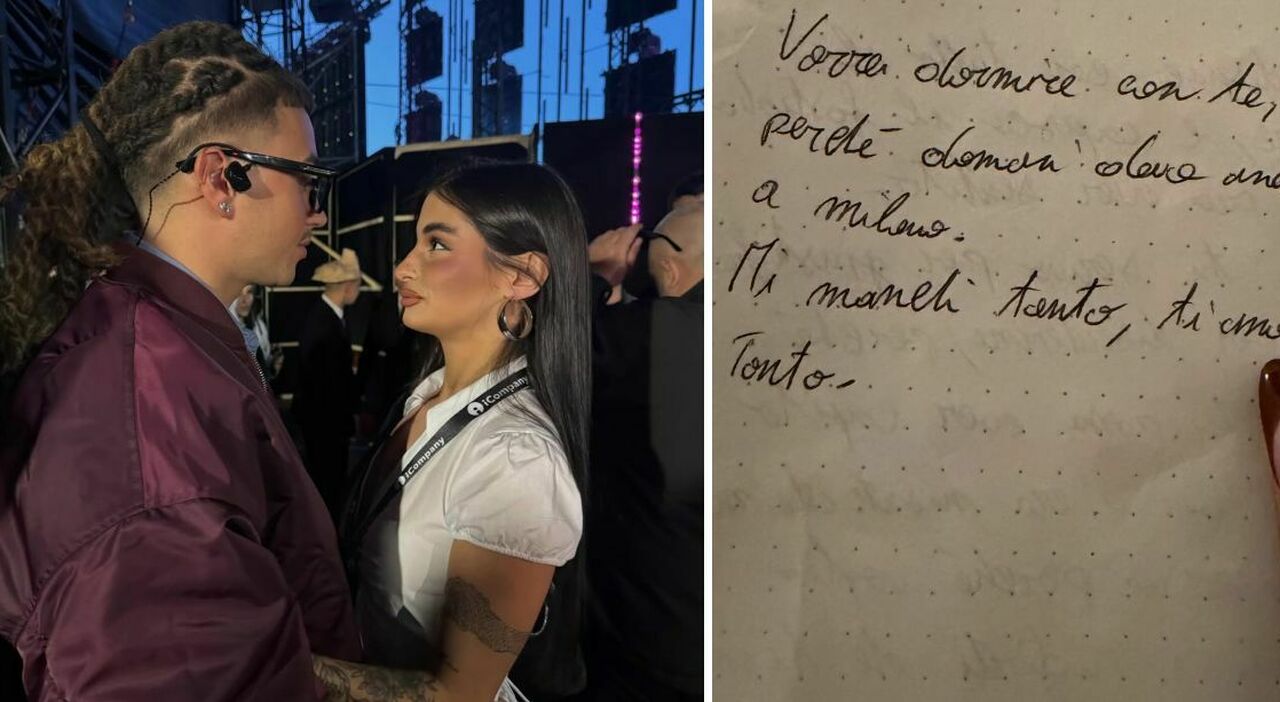 iCompany
iCompany
Vorrei dormire con te,
perché domani devo and
a milano.
Mi manchi tanto, ti amo
Tanto.